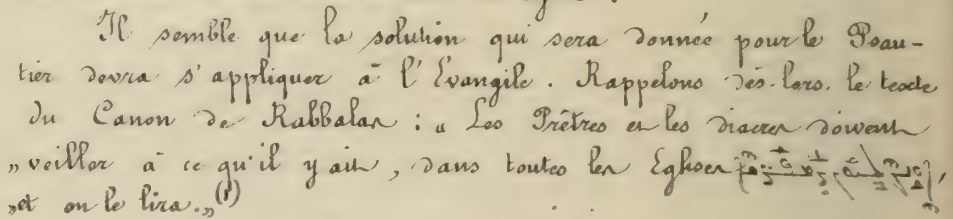 Il semble que la solution qui sera donnée pour le Psau-
tier devra s'appliquer à l'Evangile. Rappelons dès-lors, le texte
du Canon de Rabbalas : „ Les Prêtres et les diacres doivent
„ veiller à ce qu'il y ait, dans toutes les Eglises
„ et on le lira. „ (1)